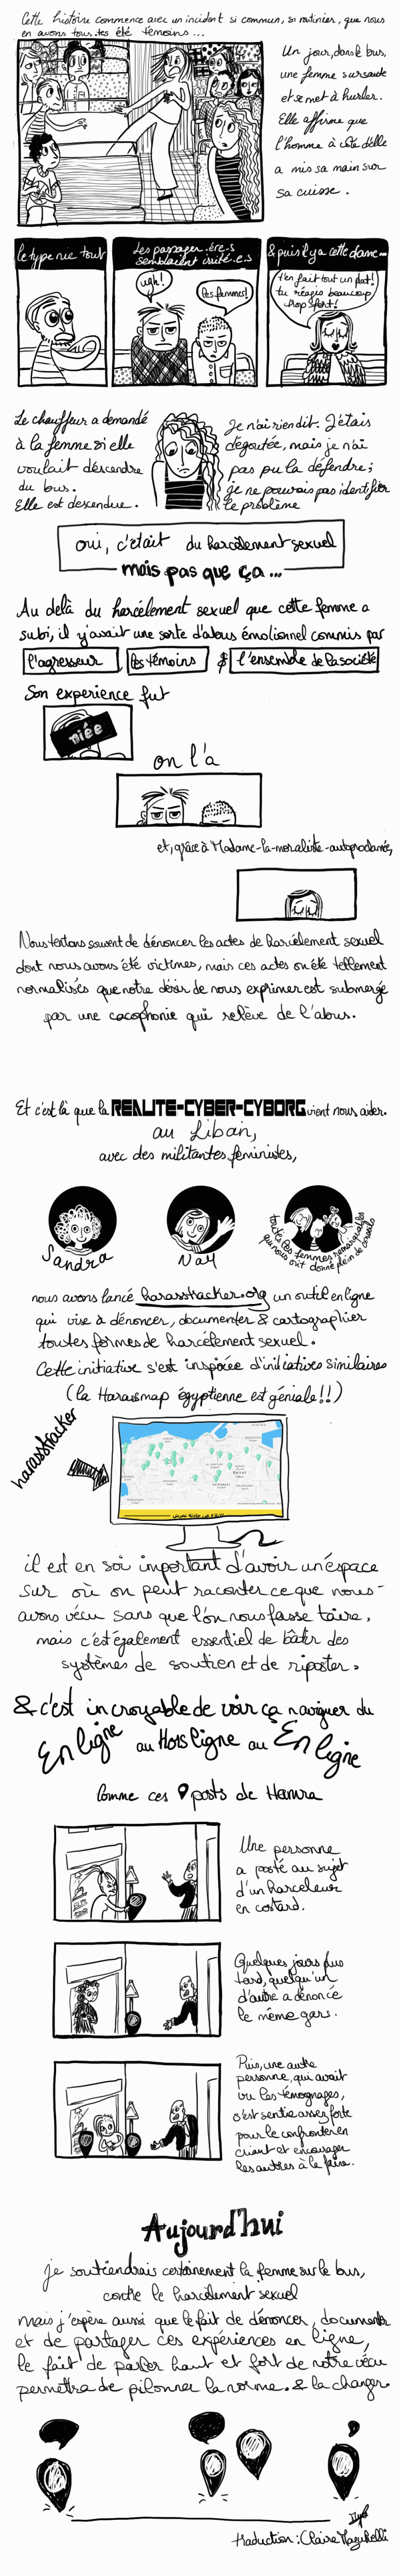 Cette histoire commence avec un incident si commun, si routinier, que nous
en avons tous.tes été témoins...
Un jour, dans le bus,
une femme sursaute
et se met à hurler.
Elle affirme que
l'homme à côté d'elle
a mis sa main sur
sa cuisse.
le type nie tout
Les passager.ère.s
semblaient irrité.e.s
& puis il y a cette dame...
ugh!
Les femmes!
t'en fait tout un plat!
tu réagis beaucoup
trop fort!
Le chauffeur a demandé
à la femme si elle
voulait descendre
du bus.
Elle est descendue.
Je n'ai rien dit. J'étais
dégoutée, mais je n'ai
pas pu la défendre;
je ne pouvais pas identifier
le problème
oui, c'était du harcèlement sexuel
mais pas que ça...
Au delà du harcélement sexuel que cette femme a
subi, il y avait une sorte d'abus émotionnel commis par
l'agresseur, les témoins & l'ensemble de la société
Son experience fut
niée
on l'a
et, grâce à Madame-la-moraliste-autoproclamée,
Nous tentons souvent de dénoncer les actes de harcélement sexuel
dont nous avons été victimes, mais ces actes on été tellement
normalisés que notre désir de nous exprimer est submergé
par une cacophonie qui relève de l'abus.
Et c'est là que la REALITE-CYBER-CYBORG vient nous aider.
au Liban,
avec des militantes féministes,
Sandra
Nay
toutes les femmes remarquables
que nous ont donné plein de conseils
nous avons lancé harasstracker.org un outil en ligne
qui vise à dénoncer, documenter & cartographier
toutes formes de harcélement sexuel.
Cette initiative s'est inspirée d'initiatives similaires
(la Harassmap égyptienne est géniale!!)
harasstracker
il est en soi important d'avoir un espace
sur où on peut raconter ce que nous-
avons vécu sans que l'on nous fasse taire,
mais c'est également essentiel de bâtir des
systèmes de soutien et de riposter.
& c'est incroyable de voir ça naviguer du
En ligne au Hors ligne au En ligne
Comme ces posts de Hamra
Une personne
a posté au sujet
d'un harceleur
en costard.
Quelques jours plus
tard, quelqu'un
d'autre a dénoncé
le même gars.
Puis, une autre
personne, qui avait
vu les témoignages,
s'est sentie assez forte
pour le confronter en
criant et encourager
les autres à le faire.
Aujourd'hui
je soutiendrais certainement la femme sur le bus,
contre le harcélement sexuel
mais j'espère aussi que le fait de dénoncer, documenter
et de partager ces expériences en ligne,
le fait de parler haut et fort de notre vécu
permettra de pilonner la norme. & la changer.
traduction: Claire Mazuhelli